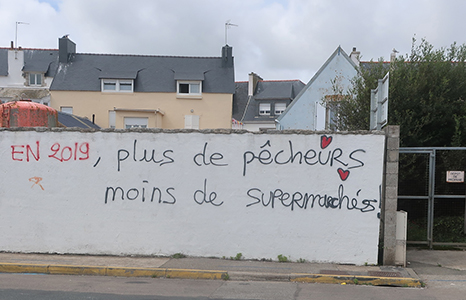 EN 2019, plus de pêcheurs
moins de SUPERmarchés